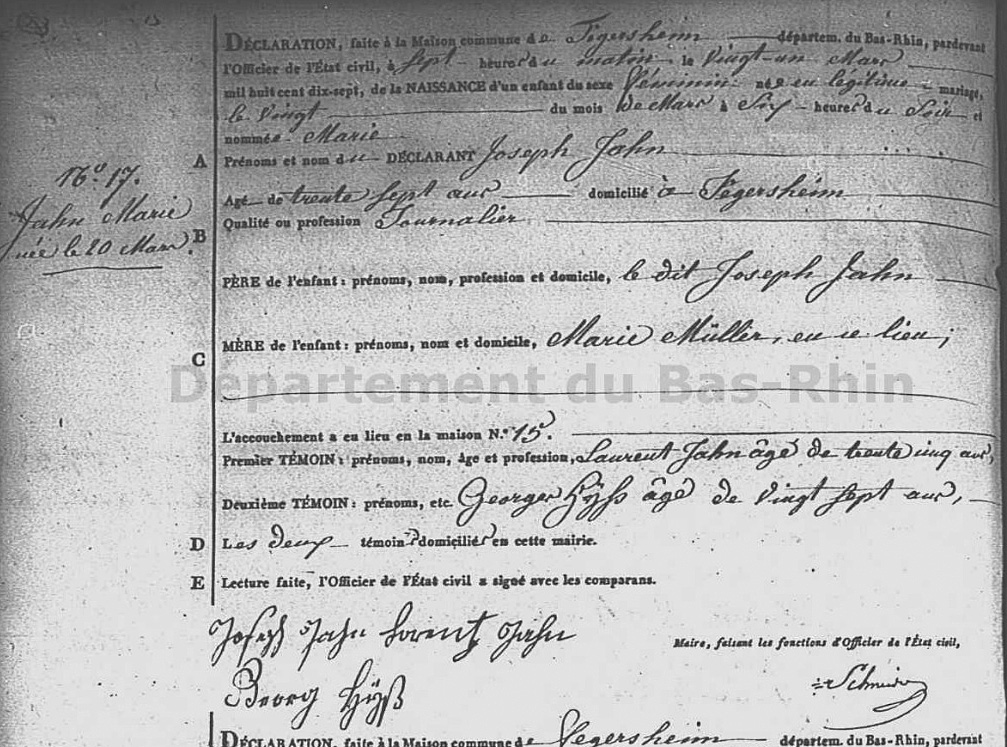 DÉCLARATION, faite à la Maison commune de Fégersheim départem. du Bas-Rhin, pardevant
l'Officier de l'État civil, à Sept heures du matin le Vingt-un Mars
mil huit cent dix-sept, de la NAISSANCE d'un enfant du sexe Féminin né en légitime mariage,
le Vingt du mois de Mars à Six heures du Soir et
nommée Marie
A Prénoms et nom du DÉCLARANT Joseph Jahn
N.º 17.
Jahn Marie
née le 20 Mars.
Agé de trente Sept ans domicilié à Fégersheim
B Qualité ou profession Journalier
PÈRE de l'enfant : prénoms, nom, profession et domicile, le dit Joseph Jahn
C MÈRE de l'enfant : prénoms, nom et domicile, Marie Müller, en ce lieu;
Département du Bas-Rhin
L'accouchement a eu lieu en la maison N.º 15.
Premier TÉMOIN : prénoms, nom, âge et profession, Laurent Jahn âgé de trente cinq ans,
Deuxième TÉMOIN : prénoms, etc. George Hÿß âgé de Vingt sept ans,
D Les deux témoins domiciliés en cette mairie.
E Lecture faite, l'Officier de l'État civil a signé avec les comparans.
Joseph Jahn Lorentz Jahn
Maire, faisant les fonctions d'Officier de l'État civil,
Georg Hÿß
DÉCLARATION, faite à la Maison commune de Fegersheim départem. du Bas-Rhin, pardevant